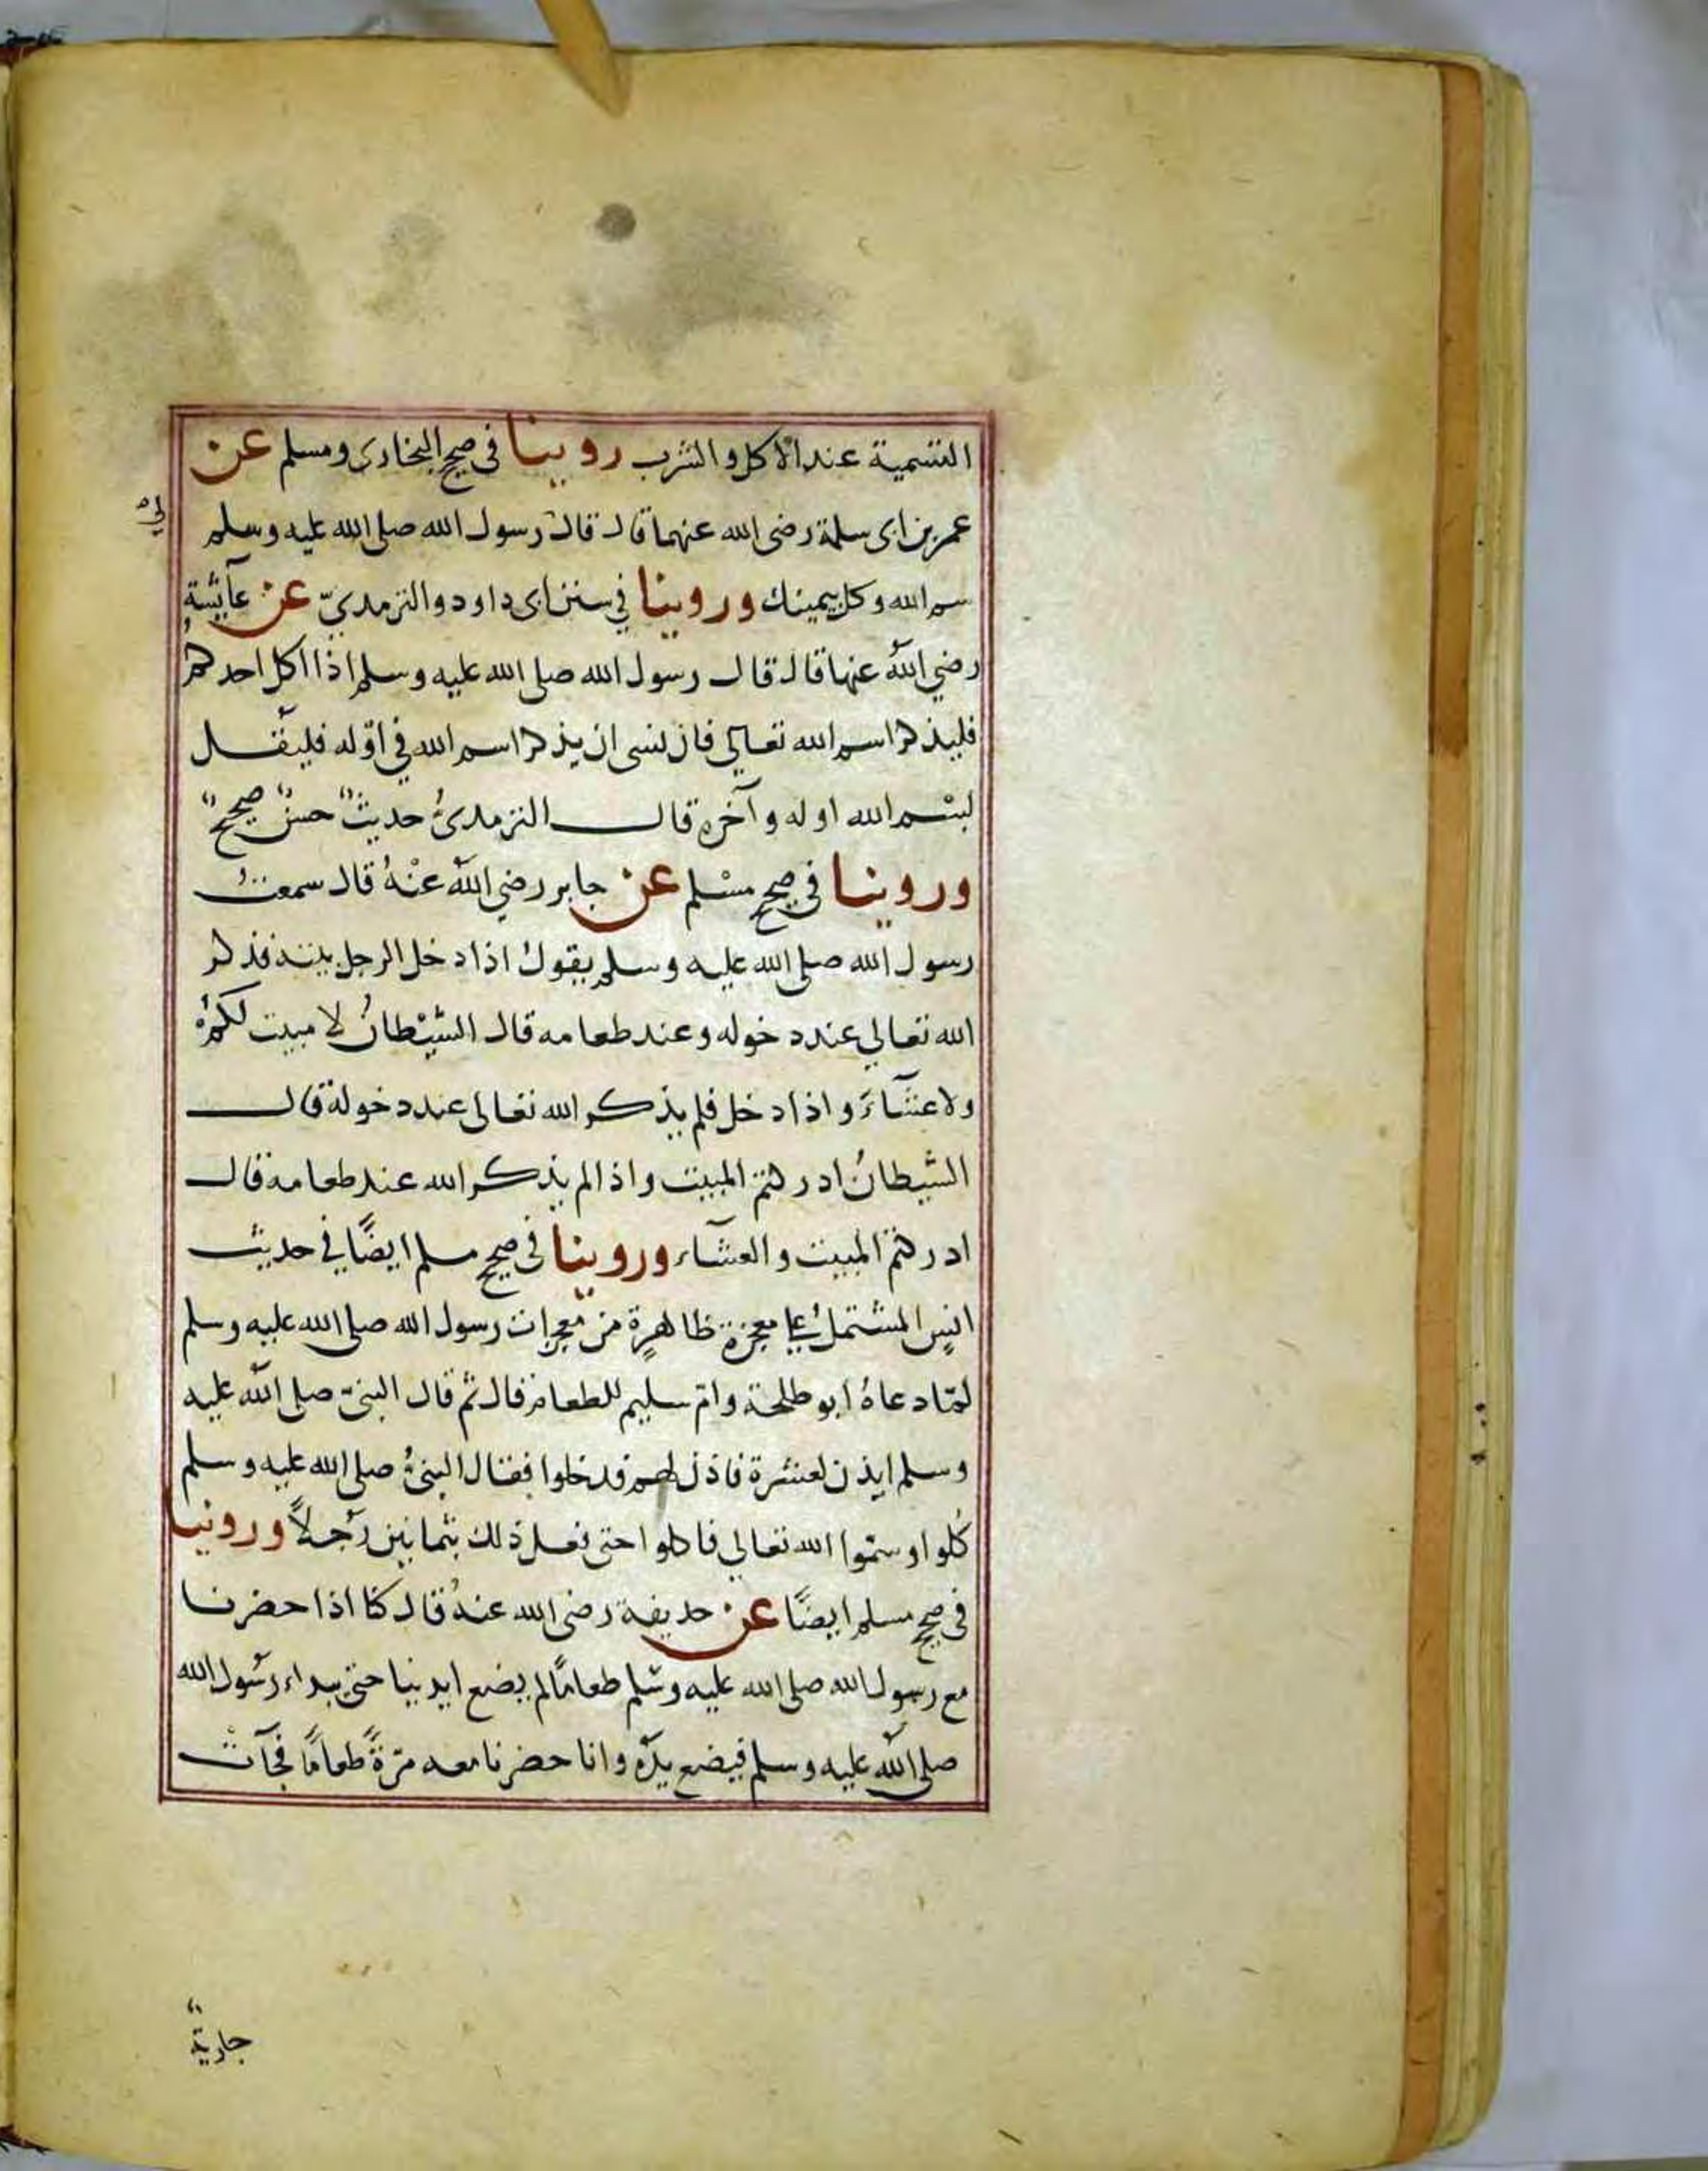 التسمية عند الاكل والشرب روينا في صحيح البخارى ومسلم عن
عمر بن ابى سلمة رضى الله عنهما قال قال رسول الله صلى الله عليه وسلم
لى
سم الله وكل بيمينك وروينا في سنن ابى داود والترمديّ عن عآيشة
رضي اللهُ عنها قال قال رسول الله صلى الله عليه وسلم اذا اكل احدكم
فليذكر اسم الله تعالي فان نسى ان يذكر اسم الله في اوّله فليقل
بسم الله اوله وآخره قال الترمدىُّ حديثٌ حسنٌ صحيحٌ
وروينا في صحيح مسْلم عن جابر رضي اللهُ عنْهُ قال سمعتُ
رسول الله صلى الله عليه وسلم يقولُ اذا دخل الرجل بيته فذكر
الله تعالي عند دخوله وعند طعامه قال الشيْطانُ لا مبيت لكم
ولا عشآءَ واذا دخل فلم يذكر الله تعالى عند دخوله قال
الشيطانُ ادركتم المبيت واذا لم يذكر الله عند طعامه قال
ادركتم المبيت والعشآء وروينا في صحيح مسلم ايضًا في حديث
انسٍ المشتملُ على معجزةٍ ظاهرةٍ من معجزات رسول الله صلى الله عليه وسلم
لمّا دعاهُ ابو طلحة وامّ سليم للطعام قال ثم قال النبىّ صلى اللهُ عليه
وسلم ايذن لعشرة فاذن لهم فدخلوا فقال النبىُّ صلى الله عليه وسلم
كُلوا وسمّوا الله تعالي فاكلوا حتى فعل ذلك بثمانين رَجلاً وروينا
في صحيح مسلم ايضًا عن حديفة رضى الله عنهُ قال كنا اذا حضرنا
مع رسول الله صلى الله عليه وسلم طعامًا لم يضع ايدينا حتى يبداء رسُول الله
صلى اللهُ عليه وسلم فيضع يدَه وانا حضرنا معه مرّةً طعامًا فجآت
جاريةٌ